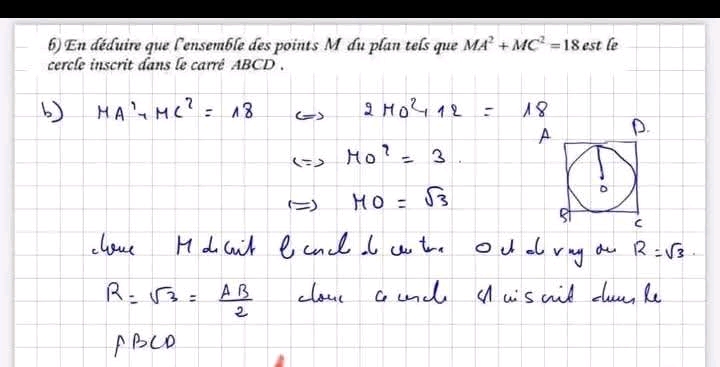 b) En déduire que l'ensemble des points M du plan tels que MA² + MC² = 18 est le
cercle inscrit dans le carré ABCD .
b) MA² + MC² = 18 <=> 2 MO² + 12 = 18
<=> MO² = 3 .
<=> MO = √3
A D.
O
B C
donc M décrit le cercle de centre O et de rayon R = √3 .
R = √3 = AB/2 donc ce cercle est inscrit dans le
ABCD